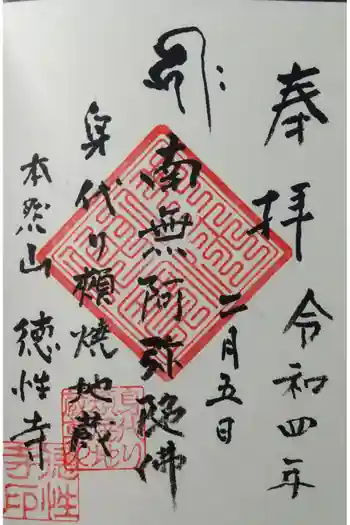 奉拝
令和四年
二月五日
南無阿弥陀佛
身代り頬焼地蔵
本然山
徳性寺